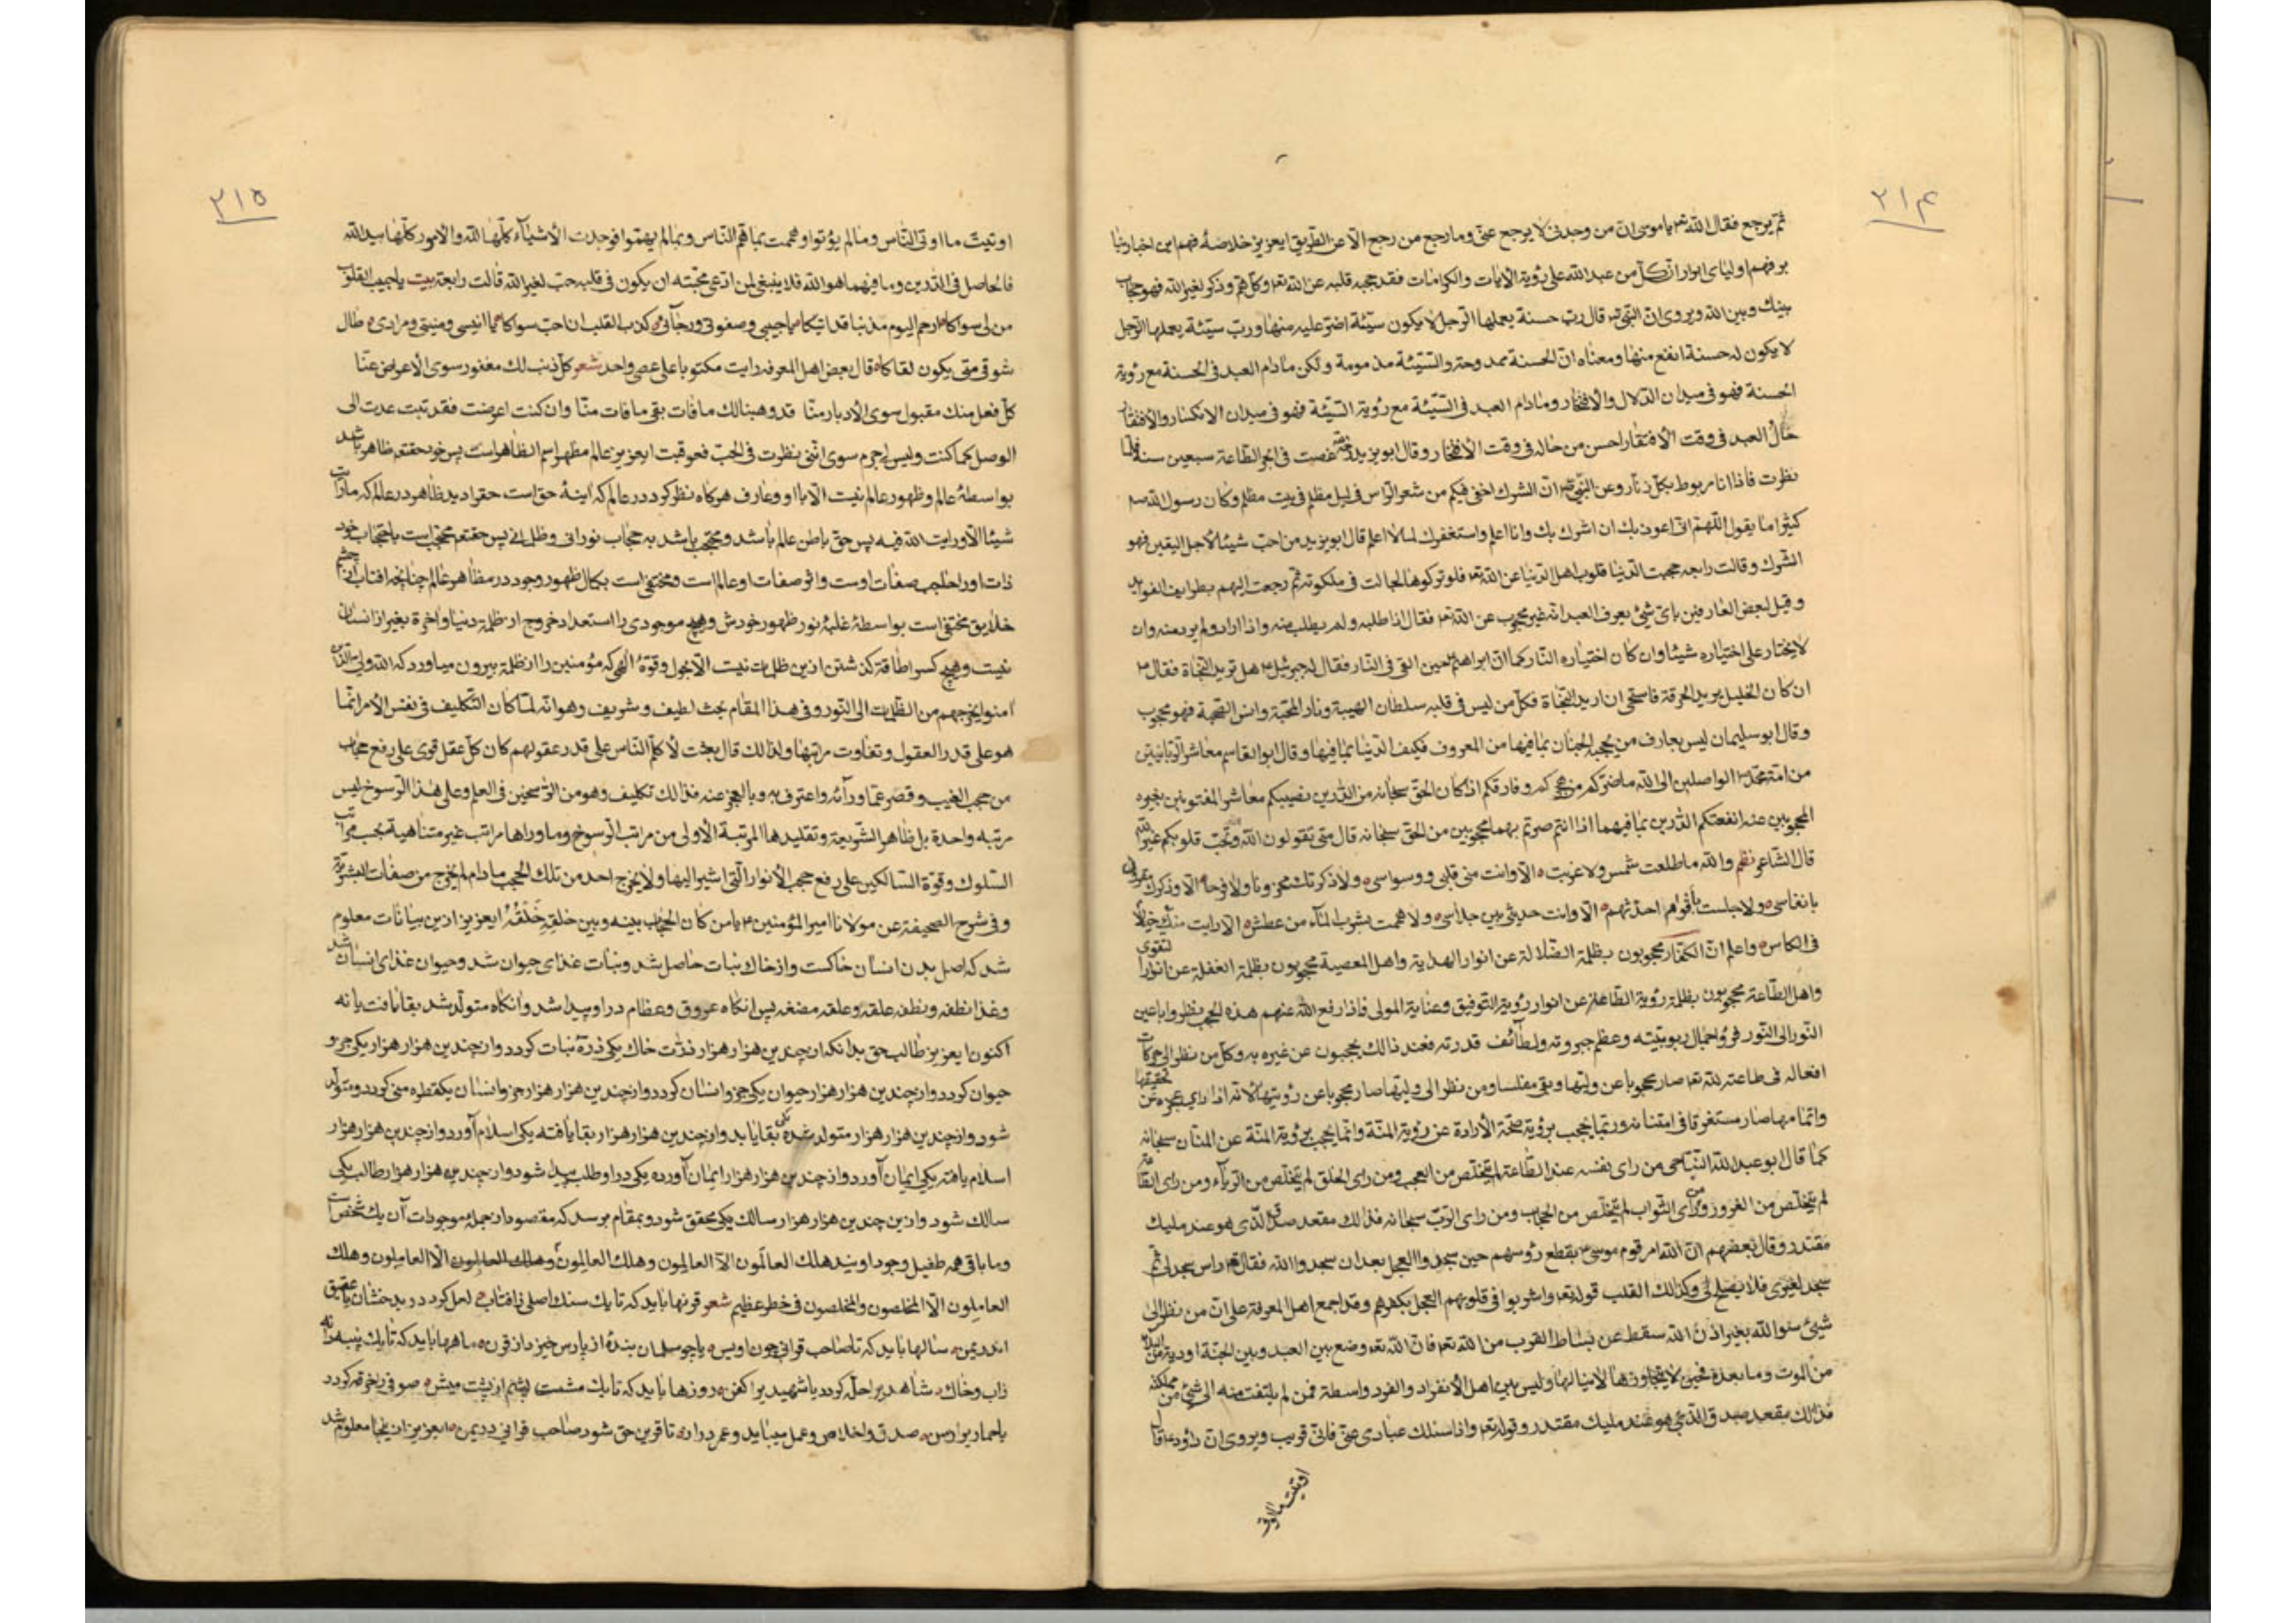 ٢١۴
ثم یرجع فقال الله تع یا موسی ان من وجدنی لا یرجع عنی وما رجع من رجع الا عن الطریق ایعزیز خلاصهٔ فهم این اخبار بنا
بر فهم اولیای ابرار ان کل من عبد الله علی رؤیة الایات والکرامات فقد حجب قلبه عن الله تع وکل هم وذکر لغیر الله فهو حجاب
بینك وبین الله ویروی ان النبی ص قال رب حسنة یعملها الرجل لا یکون سیئة اضر علیه منها ورب سیئة یعملها الرجل
لا یکون له حسنة انفع منها ومعناه ان الحسنة ممدوحة والسیئة مذمومة ولکن مادام العبد فی الحسنة مع رؤیة
الحسنة فهو فی میدان الدلال والافتخار ومادام العبد فی السیئة مع رؤیة السیئة فهو فی میدان الانکسار والافتقار
حال العبد فی وقت الافتقار احسن من حاله فی وقت الافتخار وقال ابو یزید غصت فی ابحر الطاعة سبعین سنة فلما
نظرت فاذا انا مربوط بکل زنار وعن النبی ص ان الشرك اخفی فیکم من شعر الراس فی لیل مظلم فی بیت مظلم وکان رسول الله ص
کثیرا ما یقول اللهم انی اعوذ بك ان اشرك بك وانا اعلم واستغفرك لما لا اعلم قال ابو یزید من احب شیئا لاجل الیقین فهو
الشرك وقالت رابعه حجبت الدنیا قلوب اهل الدنیا عن الله تع فلو ترکوها لجالت فی ملکوته ثم رجعت الیهم بطرایف الفواید
وقیل لبعض العارفین بای شیئ یعرف العبد انه غیر محجوب عن الله تع فقال اذا طلبه ولم یطلب منه واذا اراد ولم یرد منه وان
لا یختار علی اختیاره شیئا وان کان اختیاره النار کما ان ابراهیم ع حین القی فی النار فقال له جبرئیل ع هل ترید النجاة فقال ع
ان کان الخلیل یرید الحرقة فاستحی ان ارید النجاة فکل من لیس فی قلبه سلطان الهیبة ونار المحبة وانس الصحبة فهو محجوب
وقال ابو سلیمان لیس بعارف من یحجبه الجنان بما فیها من المعروف فکیف الدنیا بما فیها وقال ابو القاسم معاشر الربانیین
من امة محمد ص الواصلین الی الله ماضرکم من هجرکم وفارقکم اذ کان الحق سبحانه من الدارین نصیبکم معاشر المفتونین بغیره
المحجوبین عنه انفعتکم الدارین بما فیهما اذا انتم صرتم بهما محجوبین من الحق سبحانه قال متی تقولون الله وتحب قلوبکم غیر الله
قال الشاعر نظم والله ما طلعت شمس ولا غربت الا وانت منی قلبی ووسواسی ولا ذکرتك محزونا ولا فرحا الا وذکرك مقرون
بانفاسی ولا جلست باقوام احدثهم الا وانت حدیثی بین جلاسی ولا هممت بشرب المآء من عطش الا رایت منك خیالا
فی الکاس واعلم ان الکفار محجوبون بظلمة الضلالة عن انوار الهدایة واهل المعصیة محجوبون بظلمة الغفلة عن انوار التقوی
واهل الطاعة محجوبون بظلمة رؤیة الطاعة عن انوار رؤیة التوفیق وعنایة المولی فاذا رفع الله عنهم هذه الحجب نظروا باعین
النور الی النور فرؤا جمال ربوبیته وعظم جبروته ولطائف قدرته فعند ذالك یحجبون عن غیره به وکل من نظر الی حرکات
افعاله فی طاعته لله تع صار محجوبا عن ولیها وبقی مفلسا ومن نظر الی ولیها صار محجوبا عن رؤیتها لانه اذا رای عجزه عن تحقیقها
واتمامها صار مستغرقا فی امتنانه وربما یحجب برؤیة صحة الارادة عن رؤیة المنة وانما یحجب برؤیة المنة عن المنان سبحانه
کما قال ابو عبد الله النباجی من رای نفسه عند الطاعة لم یتخلص من العجب ومن رای الخلق لم یتخلص من الریآء ومن رای الطاعة
لم یتخلص من الغرور ومن رای الثواب لم یتخلص من الحجاب ومن رای الرب سبحانه فذالك مقعد صدق لذی هو عند ملیك
مقتدر وقال بعضهم ان الله امر قوم موسی ع بقطع رؤسهم حین سجدوا العجل بعد ان سجدوا الله فقال تع راس سجد لی ثم
سجد لغیری فلا یصلح لی وکذالك القلب قوله تع واشربوا فی قلوبهم العجل بکفرهم وقد اجمع اهل المعرفة علی ان من نظر الی
شیئ سوا الله بغیر اذن الله سقط عن بساط القرب من الله تع فان الله تع وضع بین العبد وبین الجنة اودیة من البلاء
من الموت وما بعده فحین لا یتجاوزها لا ینالها ولیس بین اهل الانفراد والفرد واسطة فمن لم یلتفت منه الی شیئ من مملکته
فذالك بمقعد صدق الذی هو عند ملیك مقتدر وقوله تع واذا سئلك عبادی عنی فانی قریب ویروی ان داود ع قال
اوتیت ما اوتی
٢١۵
اوتیت ما اوتی الناس وما لم یؤتوا وفهمت بما فهم الناس وبما لم یفهموا فوجدت الاشیآء کلها لله والامور کلها بید الله
فالحاصل فی الدارین وما فیهما هو الله فلا ینبغی لمن ادعی محبته ان یکون فی قلبه حب لغیر الله قالت رابعة بیت یا حبیب القلوب
من لی سواکا ارحم الیوم مذنبا قد اتیکا یا حبیبی وصفوتی ورجآئی کذب القلب ان احب سواکا یا انیسی ومنیتی ومرادی طال
شوقی متی یکون لقاکا قال بعض اهل المعرفه رایت مکتوبا علی عصی واحد شعر کل ذنب لك مغفور سوی الاعراض عنا
کل فعل منك مقبول سوی الادبار منا قد وهبنا لك ما فات بقی ما فات منا وان کنت اعرضت فقد تبت عدت الی
الوصل کما کنت ولیس لی جرم سوی اننی نظرت فی الحب فعوقبت ایعزیز عالم مظهر اسم الظاهر است پس خود حقتع ظاهر باشد
بواسطهٔ عالم وظهور عالم نیست الا باو وعارف هرکاه نظر کردد در عالم که اینهٔ حق است حقرا دید ظاهر در عالم که ما رایت
شیئا الا ورایت الله فیه پس حق باطن عالم باشد ومحتجب باشد به حجاب نورانی وظلمانی پس حقتع محتجب است باحتجاب خود
ذات اورا حجب صفات اوست واثر صفات او عالم است ومختفی است بکمال ظهور وجود در مظاهر عالم چنانچه افتاب از چشم
خلایق مختفی است بواسطهٔ غلبهٔ نور ظهور خودش وهیچ موجودی را استعداد خروج از ظلمة دنیا واخرة بغیر از انسان
نیست وهیچ کسرا طاقة کذشتن ازین ظلمات نیست الا بحول وقوهٔ الهی که مؤمنین را از ظلمة بیرون میاورد که الله ولی الذین
امنوا یخرجهم من الظلمات الی النور وفی هذا المقام بحث لطیف وشریف وهو انه لما کان التکلیف فی نفس الامر انما
هو علی قدر العقول وتفاوت مراتبها ولذالك قال بعثت لاکلم الناس علی قدر عقولهم کان کل عقل قوی علی رفع حجاب
من حجب الغیب وقصر عما ورآئه واعترف به وبالعجز عنه فذالك تکلیف وهو من الراسخین فی العلم وعلی هذا الرسوخ لیس
مرتبه واحدة بل ظاهر الشریعة وتقلیدها المرتبة الاولی من مراتب الرسوخ وما وراها مراتب غیر متناهیة بحسب مراتب
السلوك وقوة السالکین علی رفع حجب الانوار التی اشیر الیها ولا یخرج احد من تلك الحجب مادام لم یخرج من صفات البشریة
وفی شرح الصحیفة عن مولانا امیر المؤمنین ع یا من کان الحجاب بینه وبین خلقه خلقه ایعزیز ازین بیانات معلوم
شد که اصل بدن انسان خاکست واز خاك نبات حاصل شد ونبات غذای حیوان شد وحیوان غذای انسان شد
وغذا نطفه ونطفه علقه وعلقه مضغه پس انکاه عروق وعظام در او پیدا شد وانکاه متولد شد بقا یافت یا نه
اکنون ایعزیز طالب حق بدانکه از چندین هزار هزار ذرات خاك یکی ذرهٔ نبات کردد واز چندین هزار هزار یکی جزو
حیوان کردد واز چندین هزار هزار حیوان یکی جزو انسان کردد واز چندین هزار هزار جزو انسان یکقطره منی کردد ومتولد
شود واز چندین هزار هزار متولد شده یکی بقا یابد واز چندین هزار هزار بقا یافته یکی اسلام آورد واز چندین هزار هزار
اسلام یافته یکی ایمان آورد واز چندین هزار هزار ایمان آورده یکی در او طلب پیدا شود واز چندین هزار هزار طالب یکی
سالك شود وازین چندین هزار هزار سالك یکی محقق شود وبمقام برسد که مقصود از جملهٔ موجودات آن یك شخص است
وما باقی همه طفیل وجود اویند هلك العالمون الا العالمون وهلك العالمون وهلك العالمون الا العاملون وهلك
العاملون الا المخلصون والمخلصون فی خطر عظیم شعر قرنها باید که تا یك سنك اصلی ز افتاب لعل کردد در بدخشان یا عقیق
اندر یمن سالها باید که تا صاحب قرانی چون اویس یا چو سلمان بندهٔ از پارس خیزد از قرن ماهها باید که تا یك پنبه دانه
ز اب وخاك شاهدیرا حله کردد یا شهیدیرا کفن روزها باید که تا یك مشت پشم از پشت میش صوفی را خرقه کردد
یا حماریرا رسن صدق واخلاص وعمل میباید وعمر دراز تا قرین حق شود صاحب قرانی در یمن ایعزیز از اینجا معلوم شد